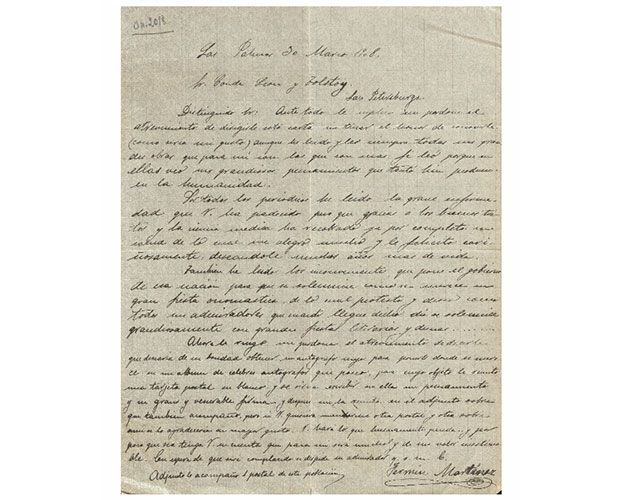 Las Palmas 30 Marzo
Sr. Conde Leon y Tolstoy.
San Petersburgo
Distinguido Sr: Ante todo le suplico me perdone el
atrevimiento de dirigirle esta carta sin tener el honor de conocerle
(como seria mi gusto) aunque he leido y leo siempre todas sus gran
des obras que para mi son las que son mas
ellas veo sus grandiosos pensamientos que tanto bien producen
en la humanidad.
En todos los periodicos he leido la grave enferme
dad que V. ha padecido pero que gracias a los buenos
y la ciencia medica ha recobrado ya por completo su
salud de lo cual me alegro mucho y le felicito cari
ñosamente deseandole muchos años mas de vida.
Tambien he leido los inconvenientes que pone el gobierno
de su nacion para que se solemnice como se merece su
gran fiesta onomastica de lo cual protesto y deseo como
todos sus admiradores que cuando llegue dicho dia se solemnice
grandiosamente con grandes fiestas literarias y demas
Ahora le ruego me perdone el atrevimiento
que desearia de su bondad obtener un autografo suyo para ponerlo donde se mere
ce en mi album de celebres autografos que poseo, para cuyo objeto le remito
una tarjeta postal en blanco y se sirva escribir en ella un pensamiento
y su gran y venerable firma, y despues me la remita en el adjunto sobre
que tambien acompaño, pero si V. quisiera mandarme otra postal y otro sobre
aun le agradeceria con mayor gusto. V. hara lo que buenamente pueda, y
pero que tenga V. en cuenta que para mi sera mucho y de un valor inestima
ble. En espera de que sera complacido se despide su admirador y s. s. C.
Fermin Martinez
Adjunto le acompaño 1 postal de esta poblacion.